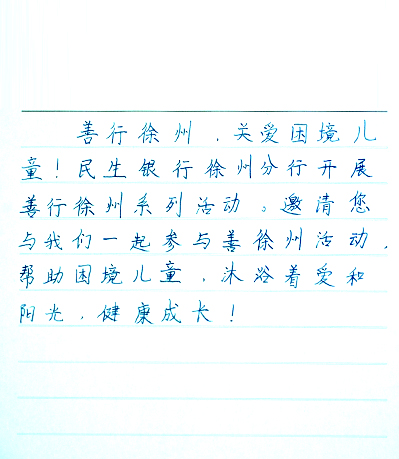 善行徐州，关爱困境儿
童！民生银行徐州分行开展
善行徐州系列活动。邀请您
与我们一起参与善徐州活动，
帮助困境儿童，沐浴着爱和
阳光，健康成长！